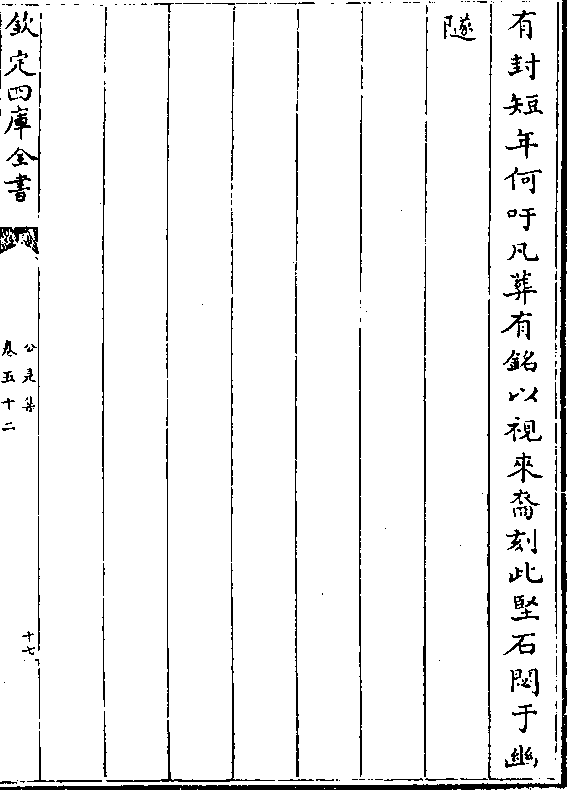 有封短年何吁凡葬有銘以視來裔刻此堅石閟于幽
隧
欽定四庫全書
公是集
卷五十二
十七